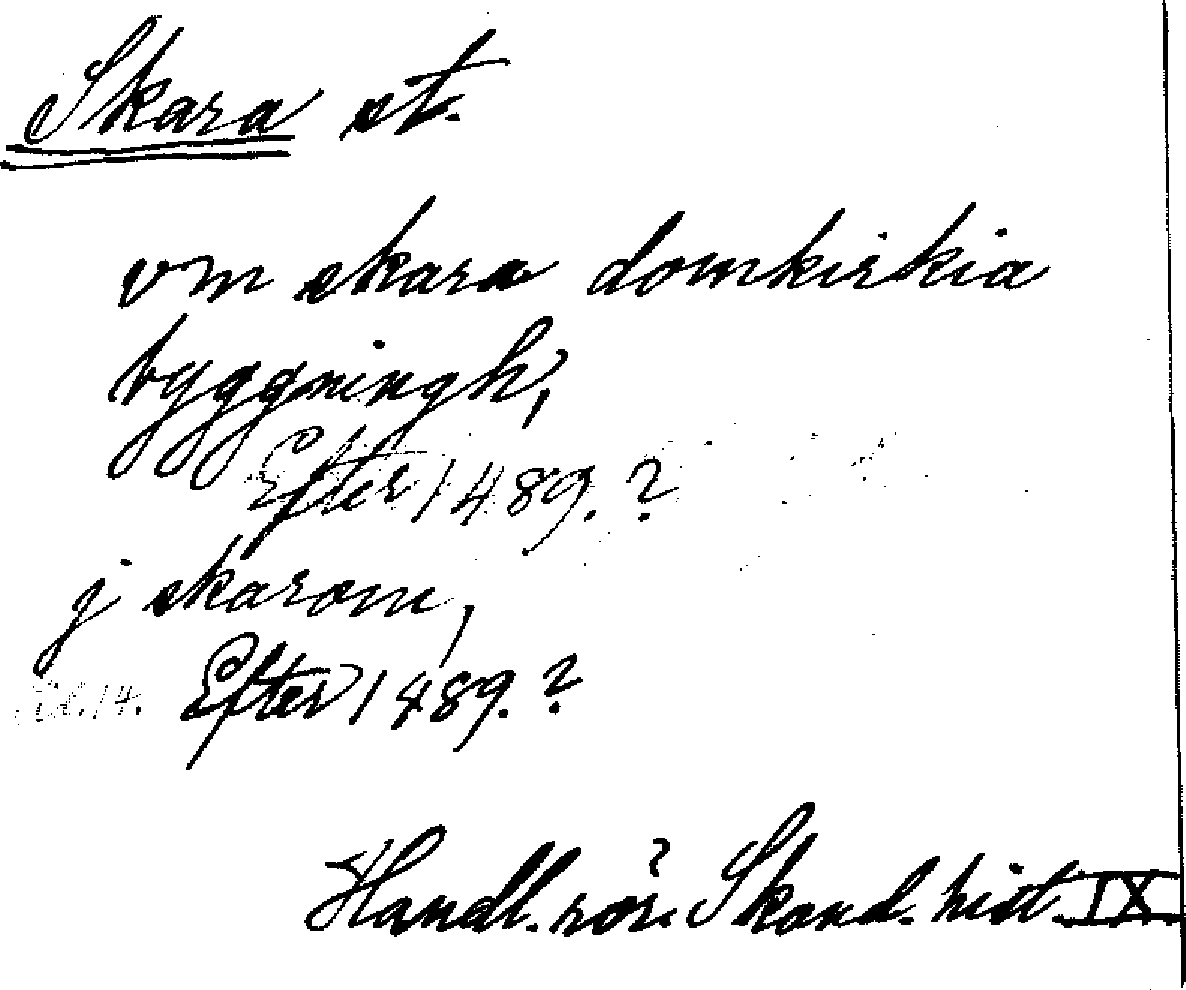 Skara st.
vm skara domkirkia
byggningh,
Efter 1489.?
j skarom,
Efter 1489.?
Handl. rör. Skand. hist. IX